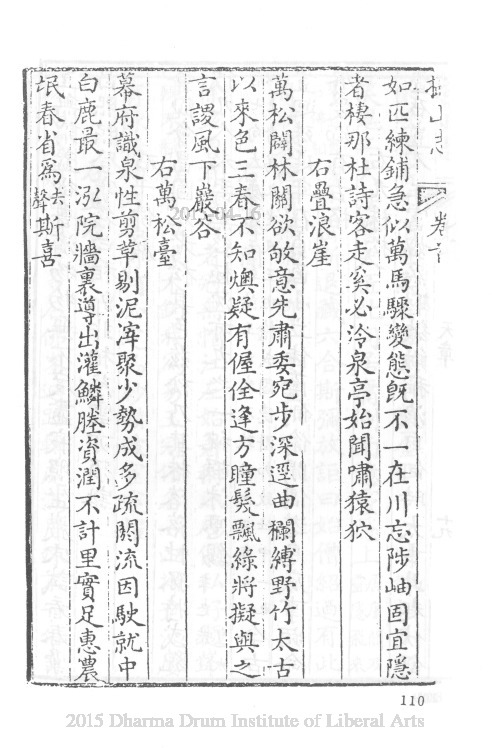 山志 卷首
如匹練鋪急似萬馬驟變態旣不一在川忘陟岫固宜隱
者棲那杜詩客走奚必冷泉亭始聞嘯猿狖
右疊浪崖
萬松闢林關欲敂意先肅委宛步深逕曲欄縛野竹太古
以來色三春不知燠疑有偓佺逢方瞳髮飄綠將擬與之
言謖風下巖谷
右萬松臺
幕府識泉性剪草剔泥滓聚少勢成多疏閼流因駛就中
白鹿最一泓院牆裏導出灌鱗塍資潤不計里實足惠農
氓春省爲去聲斯喜
110
2015 Dharma Drum Institute of Liberal Arts